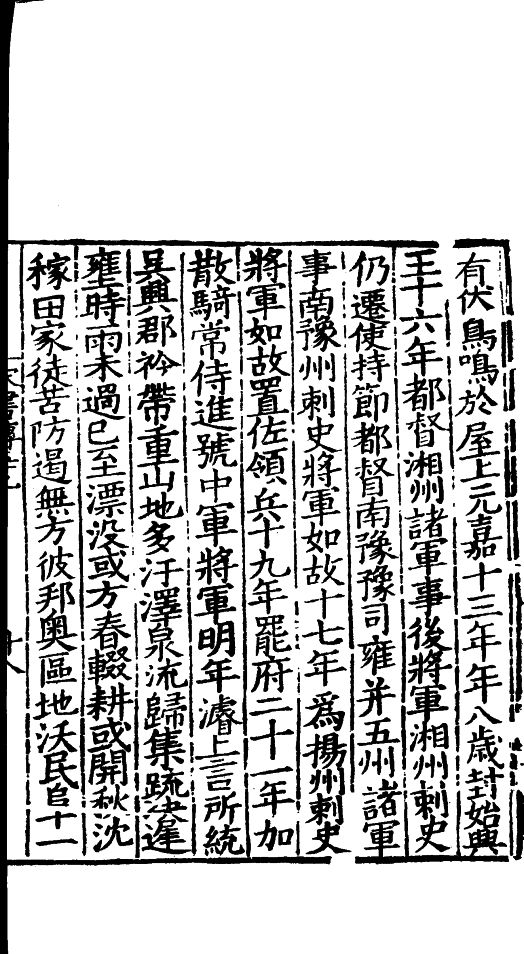 有伏鳥鳴於屋上元嘉十三年年八歳封始興
王十六年都督湘州諸軍事後將軍湘州刺史
仍遷使持節都督南豫豫司雍并五州諸軍
事南豫州刺史將軍如故十七年爲揚州刺史
將軍如故置佐領兵十九年罷府二十一年加
散騎常侍進號中軍將軍明年濬上言所統
吳興郡衿帶重山地多汙澤泉流歸集疏決遟
壅時雨未過已至漂没或方春輟耕或開秋沈
稼田家徒苦防遏無方彼邦奥區地沃民阜十一